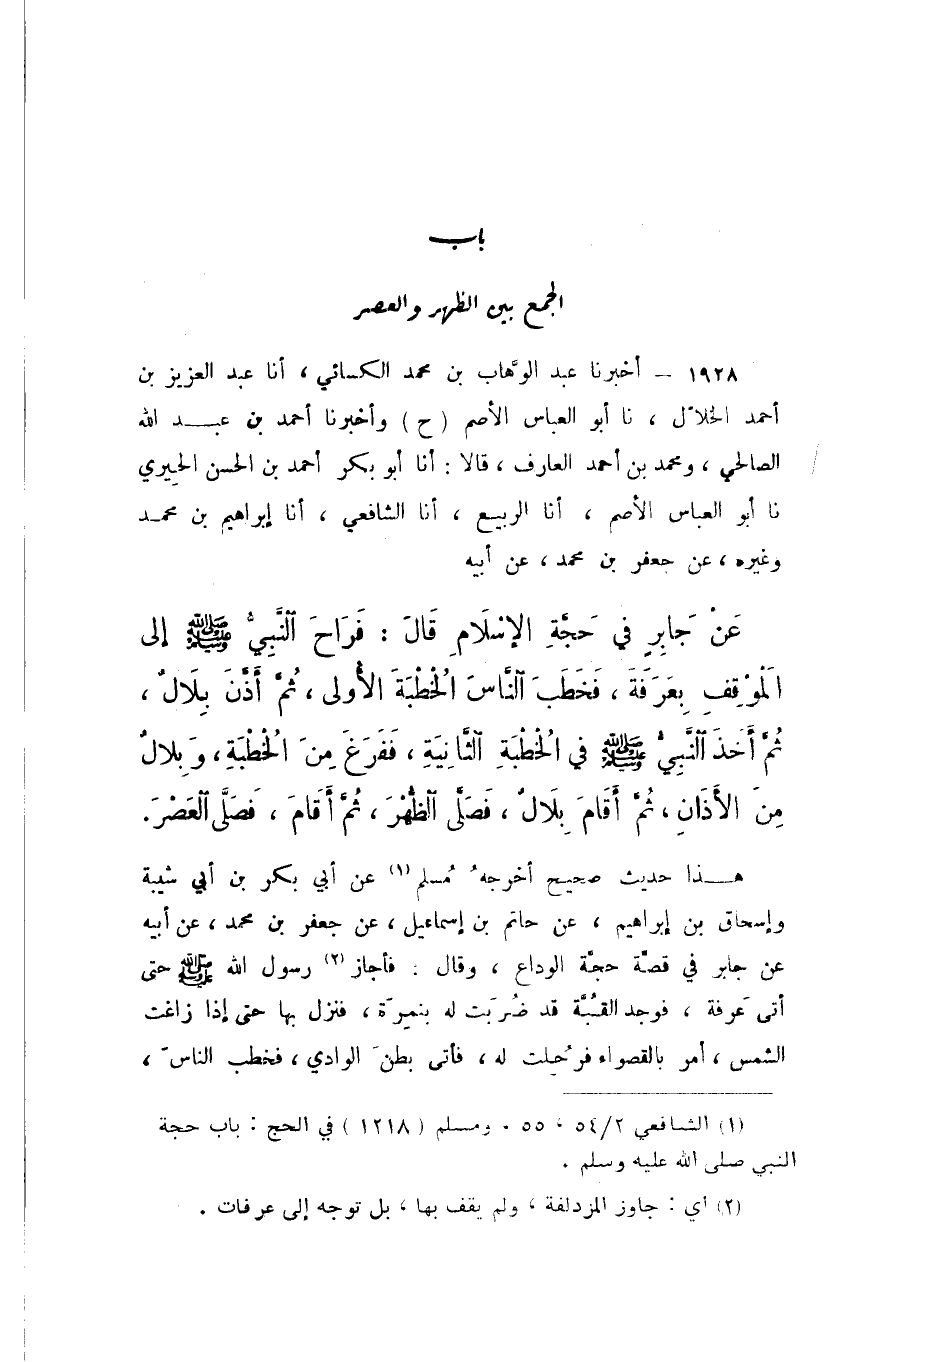 باب
الجمع بين الظهر والعصر
١٩٢٨ – أخبرنا عبد الوَهاب بن محمد الكسائي ، أنا عبد العزيز بن
أحمد الخلاّل ، نا أبو العباس الأصم ( ح ) وأخبرنا أحمد بن عبد الله
الصالحي ، ومحمد بن أحمد العارف ، قالا : أنا أبو بكر أحمد بن الحسن الحيري
نا أبو العباس الأصم ، أنا الربيع ، أنا الشافعي ، أنا إبراهيم بن محمد
وغيره ، عن جعفر بن محمد ، عن أبيه
عَنْ جَابِرٍ في حَجَّةِ الإسْلَامِ قَالَ : فَرَاحَ النَّبِيُّ ﷺ إلى
الَمْوْقِفِ بِعَرَفَةَ ، فَخَطَبَ النَّاسَ الْخُطْبَةَ الأُولى ، ثُمَّ أَذَّنَ بِلَالٌ ،
ثُمَّ أَخَذَ النَّبِيُّ ﷺ في الْخُطْبَةِ الثَّانِيَةِ ، فَفَرَغَ مِنَ الْخُطْبَةِ ، وَبِلالٌ
مِنَ الأَذَانِ ، ثُمَّ أَقَامَ بِلَالٌ ، فَصَلَّى الظُّهْرَ ، ثُمَّ أَقَامَ ، فَصَلَّى الْعَصْرَ .
هذا حديث صحيح أخرجه مُسلم (١) عن أبي بكر بن أبي شيبة
وإسحاق بن إبراهيم ، عن حاتم بن إسماعيل ، عن جعفر بن محمد ، عن أبيه
عن جابر في قصَّة حجَّة الوداع ، وقال : فأجاز (٢) رسول الله ﷺ حتى
أتى عَرفة ، فوجد القُبَّة قد ضُرَبت له بنمِرَة ، فنزل بها حتى إذا زاغت
الشمس ، أمر بالقصواء فرُحلت له ، فأتى بطنَ الوادي ، فخطب الناسَ ،
(١) الشافعي ٥٤/٢ ، ٥٥ . ومسلم ( ١٢١٨ ) في الحج : باب حجة
النبي صلى الله عليه وسلم .
(٢) أي : جاوز المزدلفة ، ولم يقف بها ، بل توجه إلى عرفات .